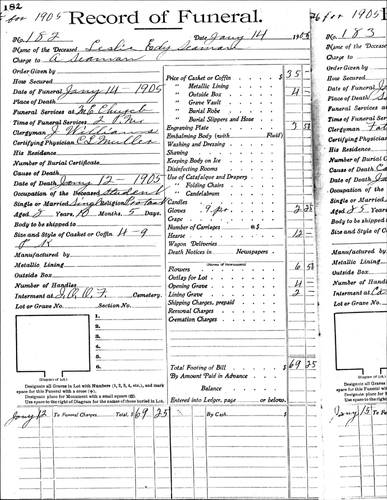 182
for 1905 Record of Funeral.
No. 182 Date Jany 14 190
Name of the Deceased Leslie Eddy Seaman
Charge to A Seaman
Order Given by
How Secured
Date of Funeral Jany 14 - 1905
Place of Death
Funeral Services at M E Church
Time of Funeral Services 2 P M
Clergyman J Williams
Certifying Physician C E Muller
His Residence
Number of Burial Certificate
Cause of Death
Date of Death Jany 12 - 1905
Occupation of the Deceased Student
Single or Married Single Religion Protest
Aged 8 Years, 10 Months, 5 Days.
Body to be shipped to
Size and Style of Casket or Coffin 4-9
Manufactured by
Metallic Lining
Outside Box
Number of Handles
Interment at I.O.O.F. Cemetery.
Lot or Grave No. Section No.
1.
2.
3.
4.
5.
6.
(Diagram of Lot.)
Designate all Graves in Lot with Numbers (1, 2, 3, 4, etc.), and mark
space for this Funeral with a cross
Designate place for Monument with a small square
Use space to the right of Diagram for the names of those buried in Lot.
Jany 12 To Funeral Charges, Total, $ 69 25
Price of Casket or Coffin $ 35 -
" Metallic Lining
" Outside Box 4 -
" Grave Vault
" Burial Robe
" Burial Slippers and Hose
Engraving Plate
Embalming Body (with Fluid)
Washing and Dressing
Shaving
Keeping Body on Ice
Disinfecting Rooms
Use of Catafalque and Drapery
" Folding Chairs
" Candelabrum
Candles
Gloves 9 pr. 2 25
Crape
Number of Carriages @ $
Hearse 12 -
Wagon Deliveries
Death Notices in Newspapers
(Names of Newspapers)
Flowers 6 50
Outlay for Lot
Opening Grave 4 -
Lining Grave 2
Shipping Charges, prepaid
Removal Charges
Cremation Charges
Total Footing of Bill $ 69 25
By Amount Paid in Advance
Balance
Entered into Ledger, page or below.
By Cash $
for 1905
No. 183
Name of the Deceased
Charge to
Order Given by
How Secured
Date of Funeral
Place of Death
Funeral Services at
Time of Funeral
Clergyman
Certifying Physician
His Residence
Number of Burial
Cause of Death
Date of Death
Occupation of the
Single or Married
Aged 85 Years,
Body to be shipped to
Size and Style of
Manufactured by
Metallic Lining
Outside Box
Number of Handles
Interment at
Lot or Grave No.
(Diagram of Lot)
Designate all
space for this
Designate
Use space
Jany 15 To